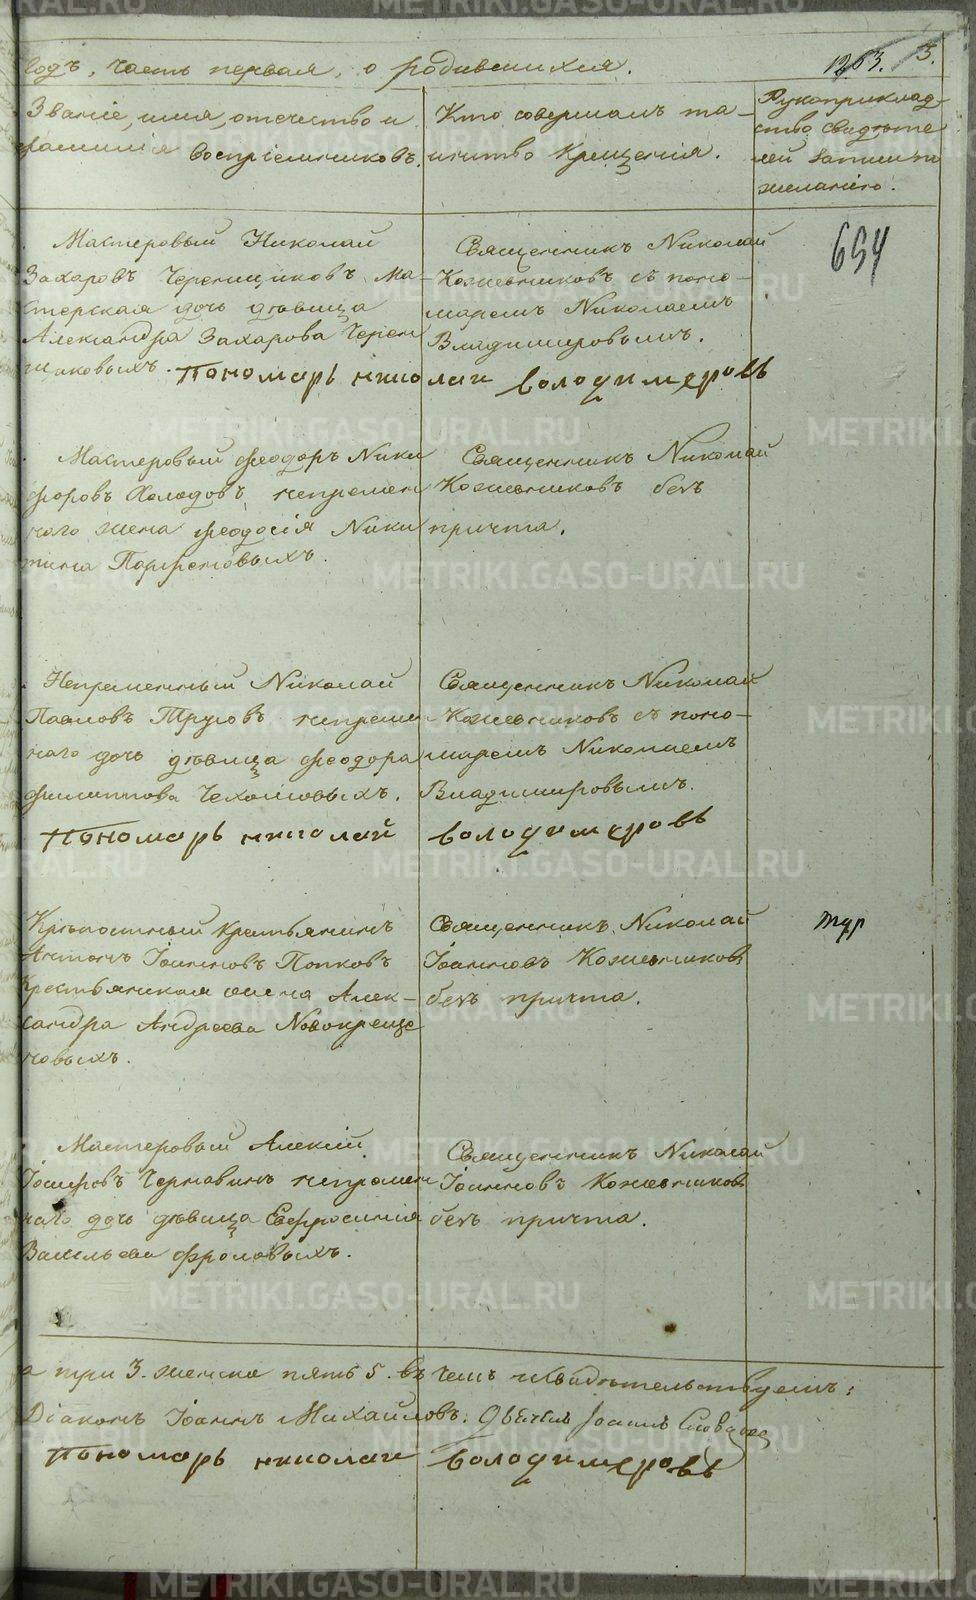 Годъ, часть первая, о родившихся. 1263. 3.
Званіе, имя, отечество и
фамилія воспріемниковъ.
Кто совершалъ та-
инство Крещенія.
Рукоприклад-
ство свидѣте
лей записи по
желанію.
Мастеровый Николай
Захаровъ Черепщиковъ Ма-
стерская дочь дѣвица
Александра Захарова Череп
щиковыхъ.
Священникъ Николай
Кожевниковъ съ поно-
маремъ Николаемъ
Владимировымъ.
654
Пономарь николаи володимеровъ
Мастеровый Феодоръ Ники
форовъ Холодовъ непремен
наго жена Феодосія Ники
тина Парфеновыхъ.
Священникъ Николай
Кожевниковъ безъ
причта.
Непременный Николай
Павловъ Трусовъ непремен
наго дочь дѣвица Феодора
Филиппова Чехомовыхъ.
Священникъ Николай
Кожевниковъ съ поно-
маремъ Николаемъ
Владимировымъ.
Пономарь николай володимеровъ
Крѣпостный крестьянинъ
Антонъ Іоанновъ Попковъ
Крестьянская жена Алек-
сандра Андреева Новокреще
новыхъ.
Священникъ Николай
Іоанновъ Кожевниковъ
безъ причта.
тур
Мастеровый Алексій
Іосифовъ Чернавинъ непремен
наго дочь дѣвица Евфросинія
Васильева Фроловыхъ.
Священникъ Николай
Іоанновъ Кожевниковъ
безъ причта.
а три 3. женска пять 5. въ чемъ и свидѣтельствуемъ:
Діаконъ Іоаннъ Михайловъ. Дьячекъ Іоаннъ
Пономарь николаи володимеровъ
METRIKI.GASO-URAL.RU